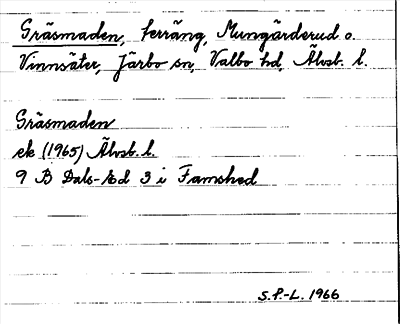 Gräsmaden, terräng, Mungärderud o.
Vinnsäter, Järbo sn, Valbo hd, Älvsb. l.
Gräsmaden
ek (1965) Älvsb. l.
9 B Dals-Ed 3 i Famshed
S.F.-L. 1966